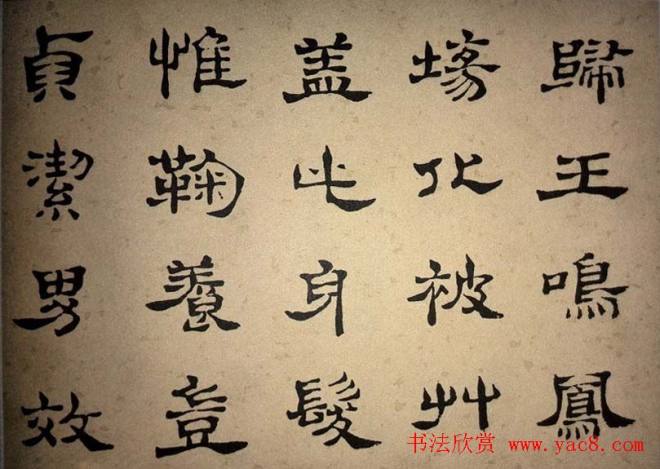 歸王鳴鳳
塲化被艸
盖此身髮
惟鞠養豈
貞潔男效
书法欣赏 www.yac8.com